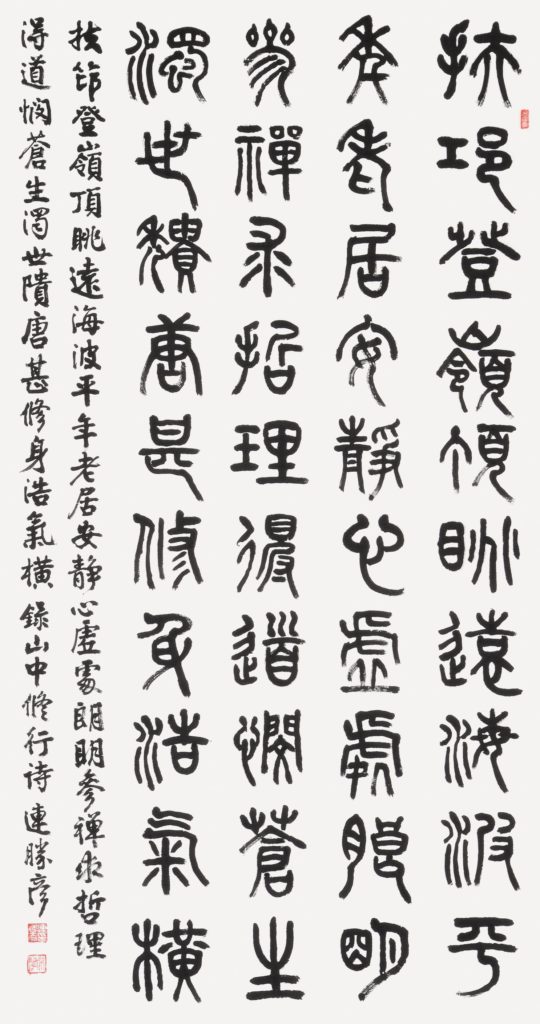 扶邛登嶺頂眺遠海波平
年老居安靜心虛處朗明
參禪求哲理得道憫蒼生
濁世穨唐甚修身浩氣橫
扶筇登嶺頂眺遠海波平年老居安靜心虛處朗明參禪求哲理
得道憫蒼生濁世隤唐甚修身浩氣橫錄山中修行诗連勝彥